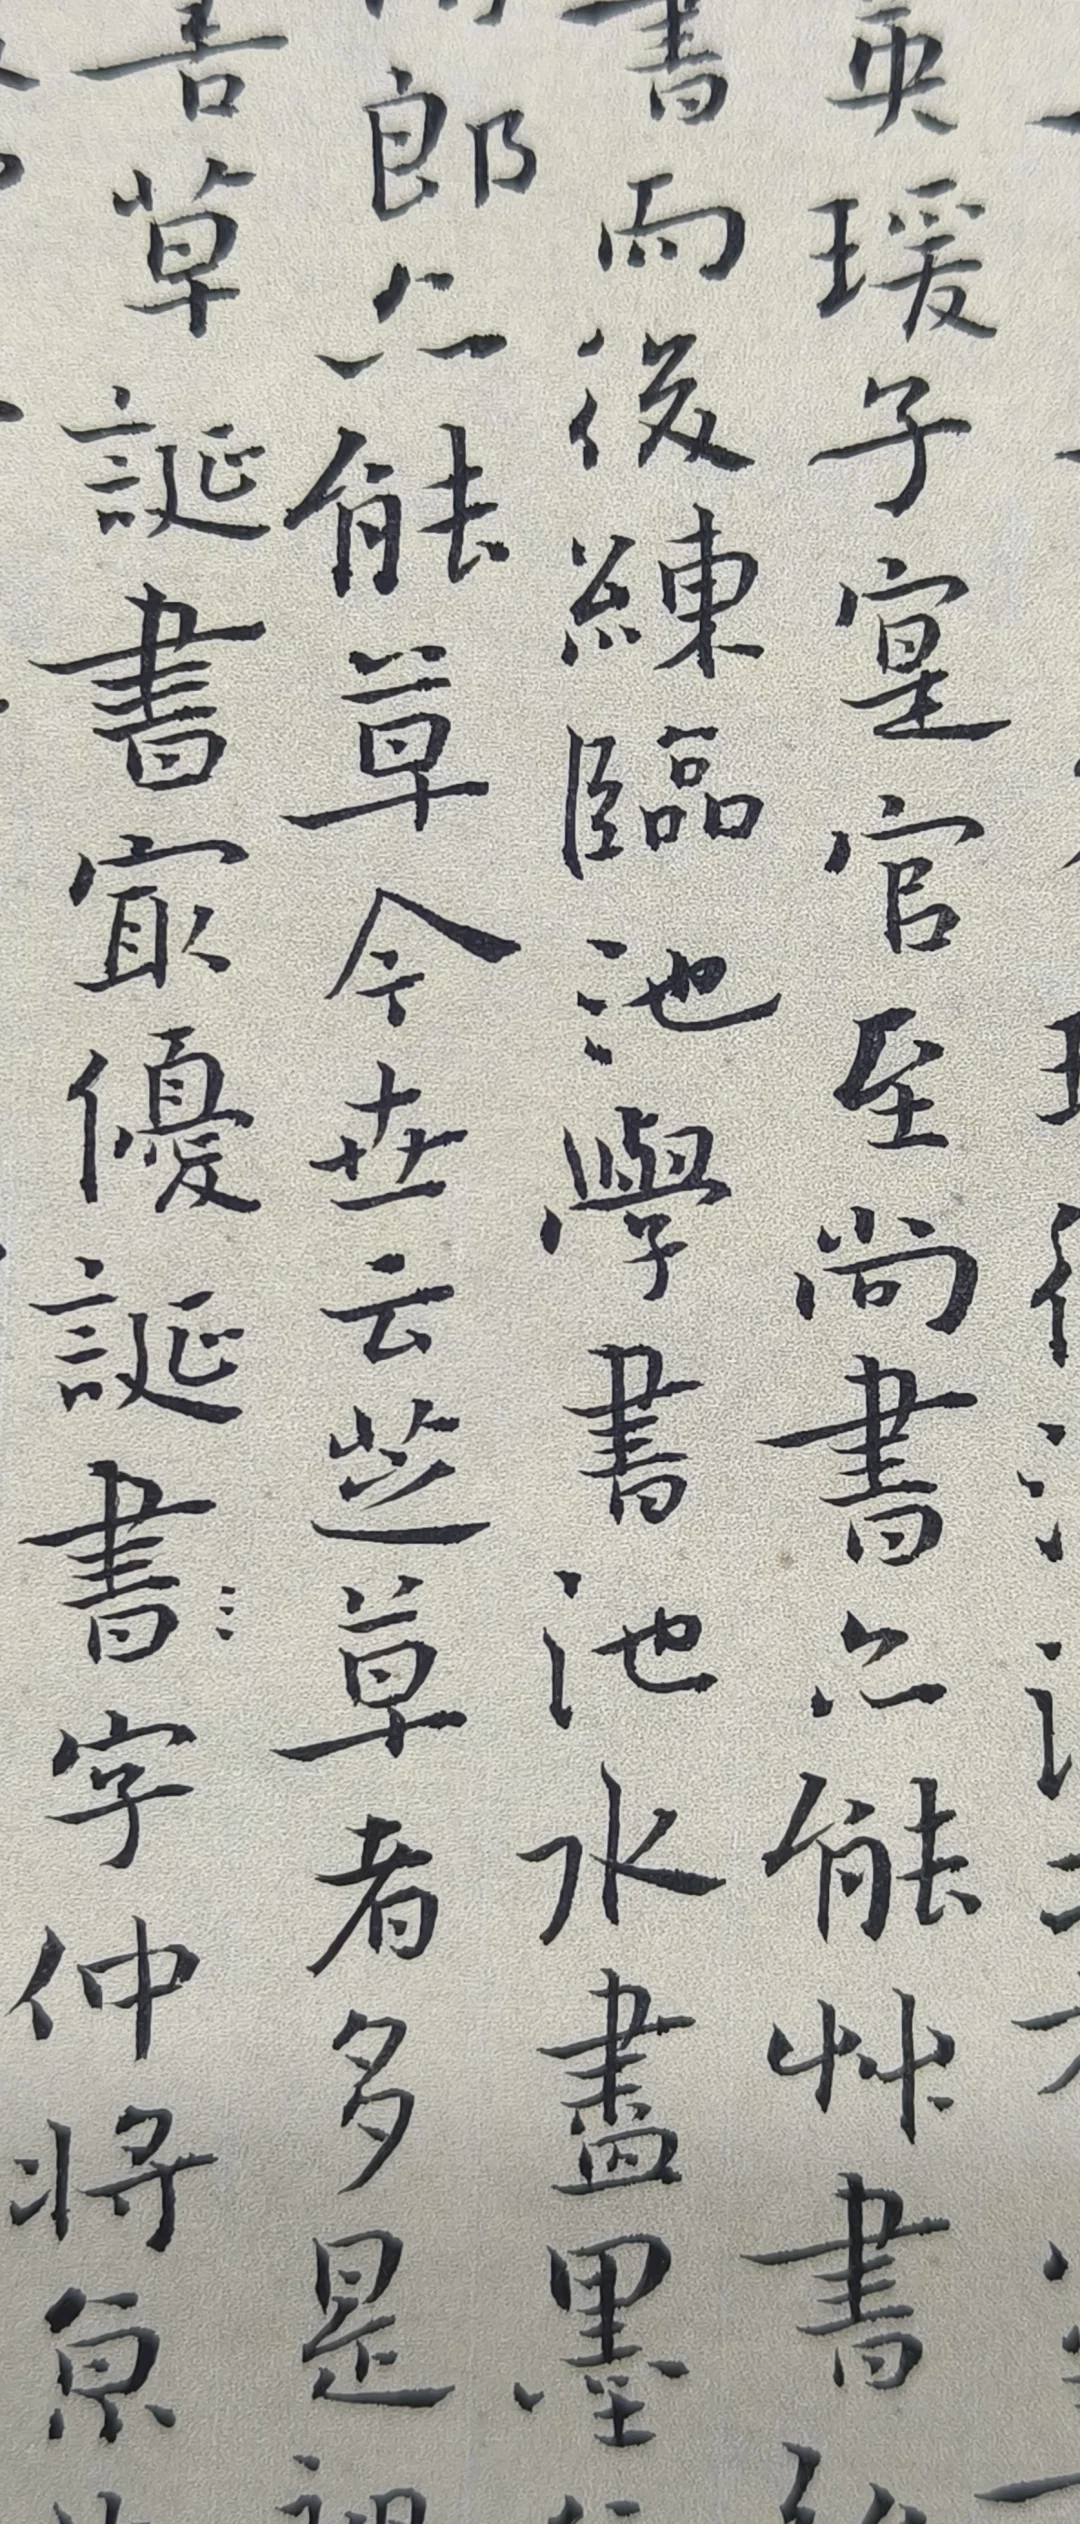 英瑗子寔官至尚書亦能艸書
書而後練臨池學書池水盡墨
郎亦能草今世云芝草者多是
善草誕書冣優誕書字仲将京